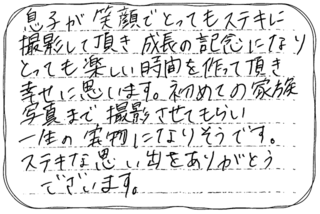 息子が笑顔でとってもステキに
撮影して頂き 成長の記念になり
とっても楽しい時間を作って頂き
幸せに思います。初めての家族
写真まで撮影させてもらい
一生の宝物になりそうです。
ステキな思い出をありがとう
ございます。